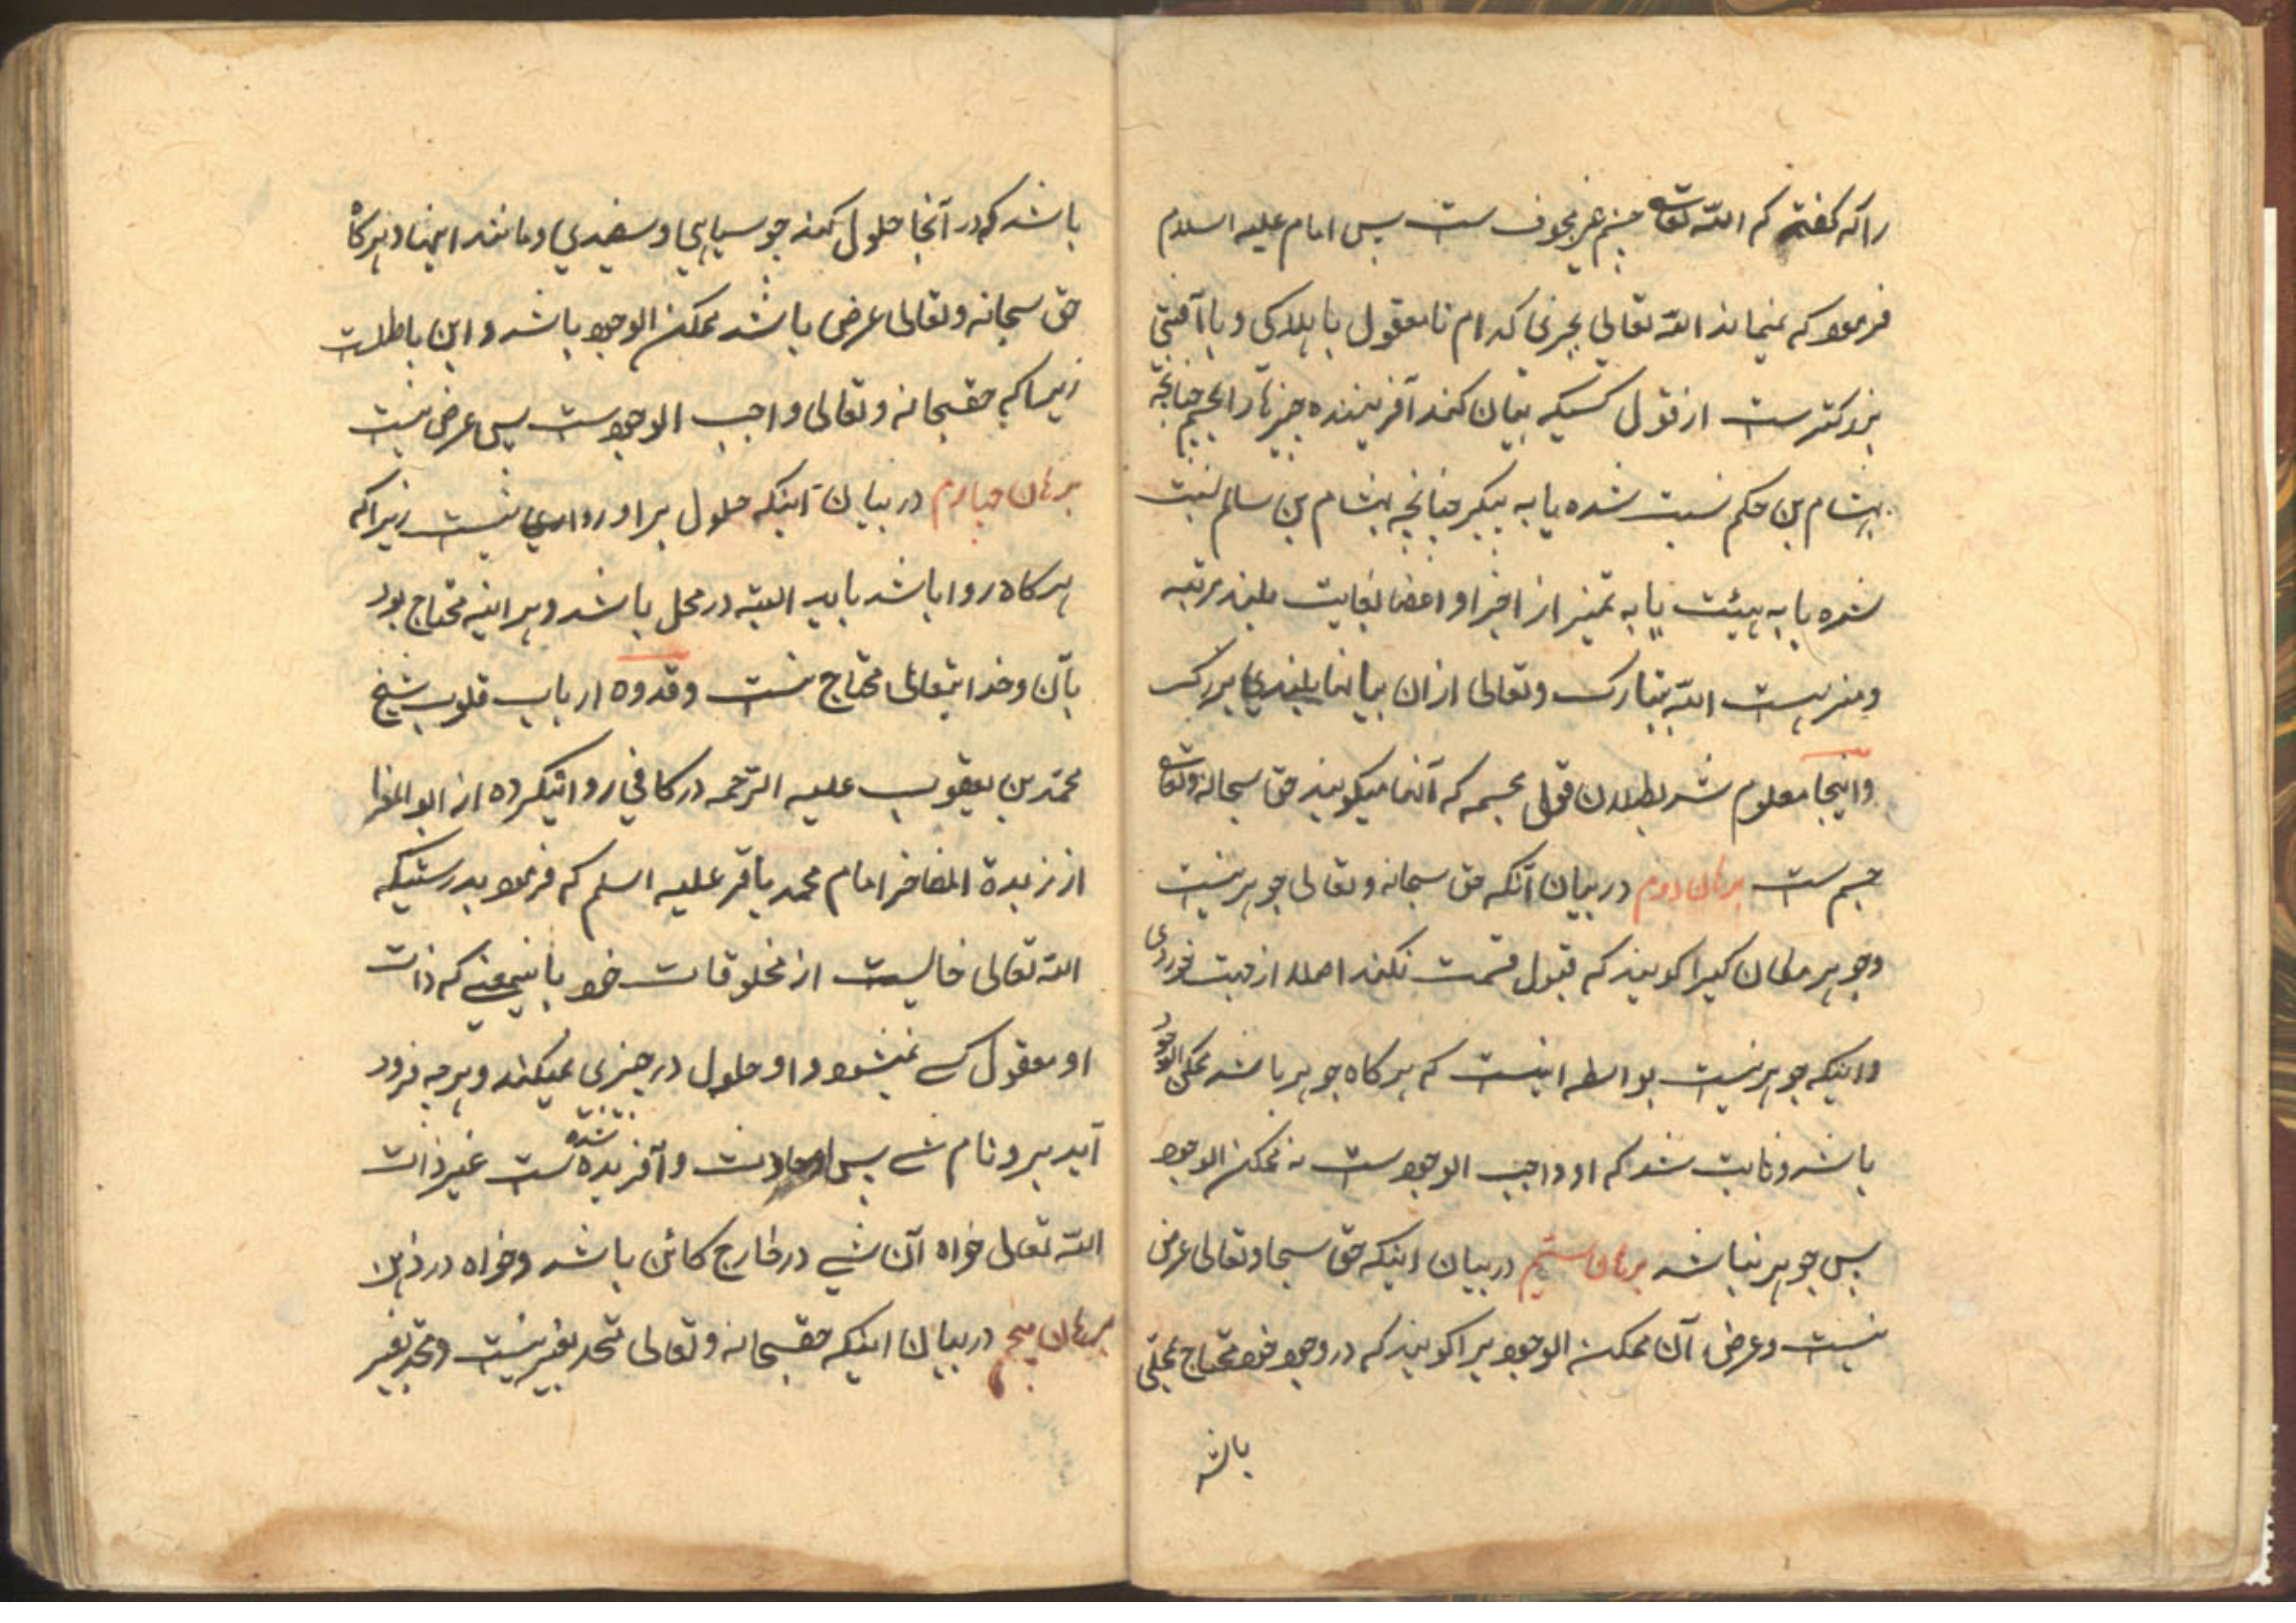 را که گفته که الله تعالی جسم غیر مجوف ست پس امام علیه السلام
فرمود که نمیماند الله تعالی بچیزی کدام نامعقول یا هلاکی و یا آفتی
بزرکتر ست از قول کسیکه بیان کند آفریننده چیزها را بجسم چنانچه
بهشام بن حکم نسبت شده یا به پیکر چنانچه بهشام بن سالم نسبت
شده یا به هیئت یا به تمیز از اجزا و اعضا بغایت بلند مرتبه
و منزه ست الله تبارک و تعالی از ان بیانها بلندی بزرک
و اینجا معلوم شد بطلان قول مجسمه که آنها میکویند حق سبحانه و تعالی
جسم ست برهان دوم در بیان آنکه حق سبحانه و تعالی جوهر نیست
و جوهر مکان کیرا کویند که قبول قسمت نکند اصلا از جهت خوردی
و اینکه جوهر نیست بواسطه اینست که هرکاه جوهر باشد ممکن الوجود
باشد و ثابت شد که او واجب الوجودست نه ممکن الوجود
پس جوهر نباشد برهان سیّم در بیان اینکه حق سبحا و تعالی عرض
نیست و عرض آن ممکن الوجود یرا کویند که در وجود خود محتاج بمحلی
باشد
باشد که در آنجا حلول کند چو سیاهی و سفیدی و مانند اینها و هرکاه
حق سبحانه و تعالی عرض باشد ممکن الوجود باشد و این باطلست
زیرا که حقسبحانه و تعالی واجب الوجودست پس عرض نیست
برهان چهارم در بیان اینکه حلول بر او روا نیست زیرا که
هرکاه روا باشد باید البته در محل باشد و هراینه محتاج بود
بآن و خدایتعالی محتاج نیست و قدوه ارباب قلوب شیخ
محمّد بن یعقوب علیه الرّحمه در کافی روایتکرده از ابو المغرا
از زبدة المفاخر امام محمد باقر علیه اسلم که فرمود بدرستیکه
الله تعالی خالیست از مخلوقات خود باینمعنی که ذات
او معقول کسی نمیشود و او حلول در چیزی نمیکند و هرچه فرود
آید برو نام شی پس او حادثت و آفریده شده ست غیر ذات
الله تعالی خواه آن شیی در خارج کائن باشد و خواه در ذهن
برهان پنجم در بیان اینکه حقسبحانه و تعالی متحد بغیر نیست و متحد بغیر